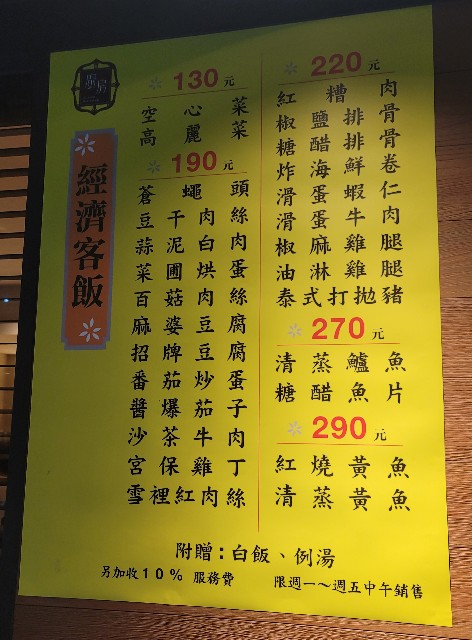 經濟客飯
130元
空心菜
高麗菜
190元
蒼蠅頭
豆干肉絲
蒜泥白肉
菜圃烘蛋
百菇肉絲
麻婆豆腐
招牌豆腐
番茄炒蛋
醬爆茄子
沙茶牛肉
宮保雞丁
雪裡紅肉絲
220元
紅糟肉
椒鹽排骨
糖醋排骨
炸海鮮卷
滑蛋蝦仁
滑蛋牛肉
椒麻雞腿
油淋雞腿
泰式打拋豬
270元
清蒸鱸魚
糖醋魚片
290元
紅燒黃魚
清蒸黃魚
附贈：白飯、例湯
另加收10% 服務費
限週一～週五中午銷售